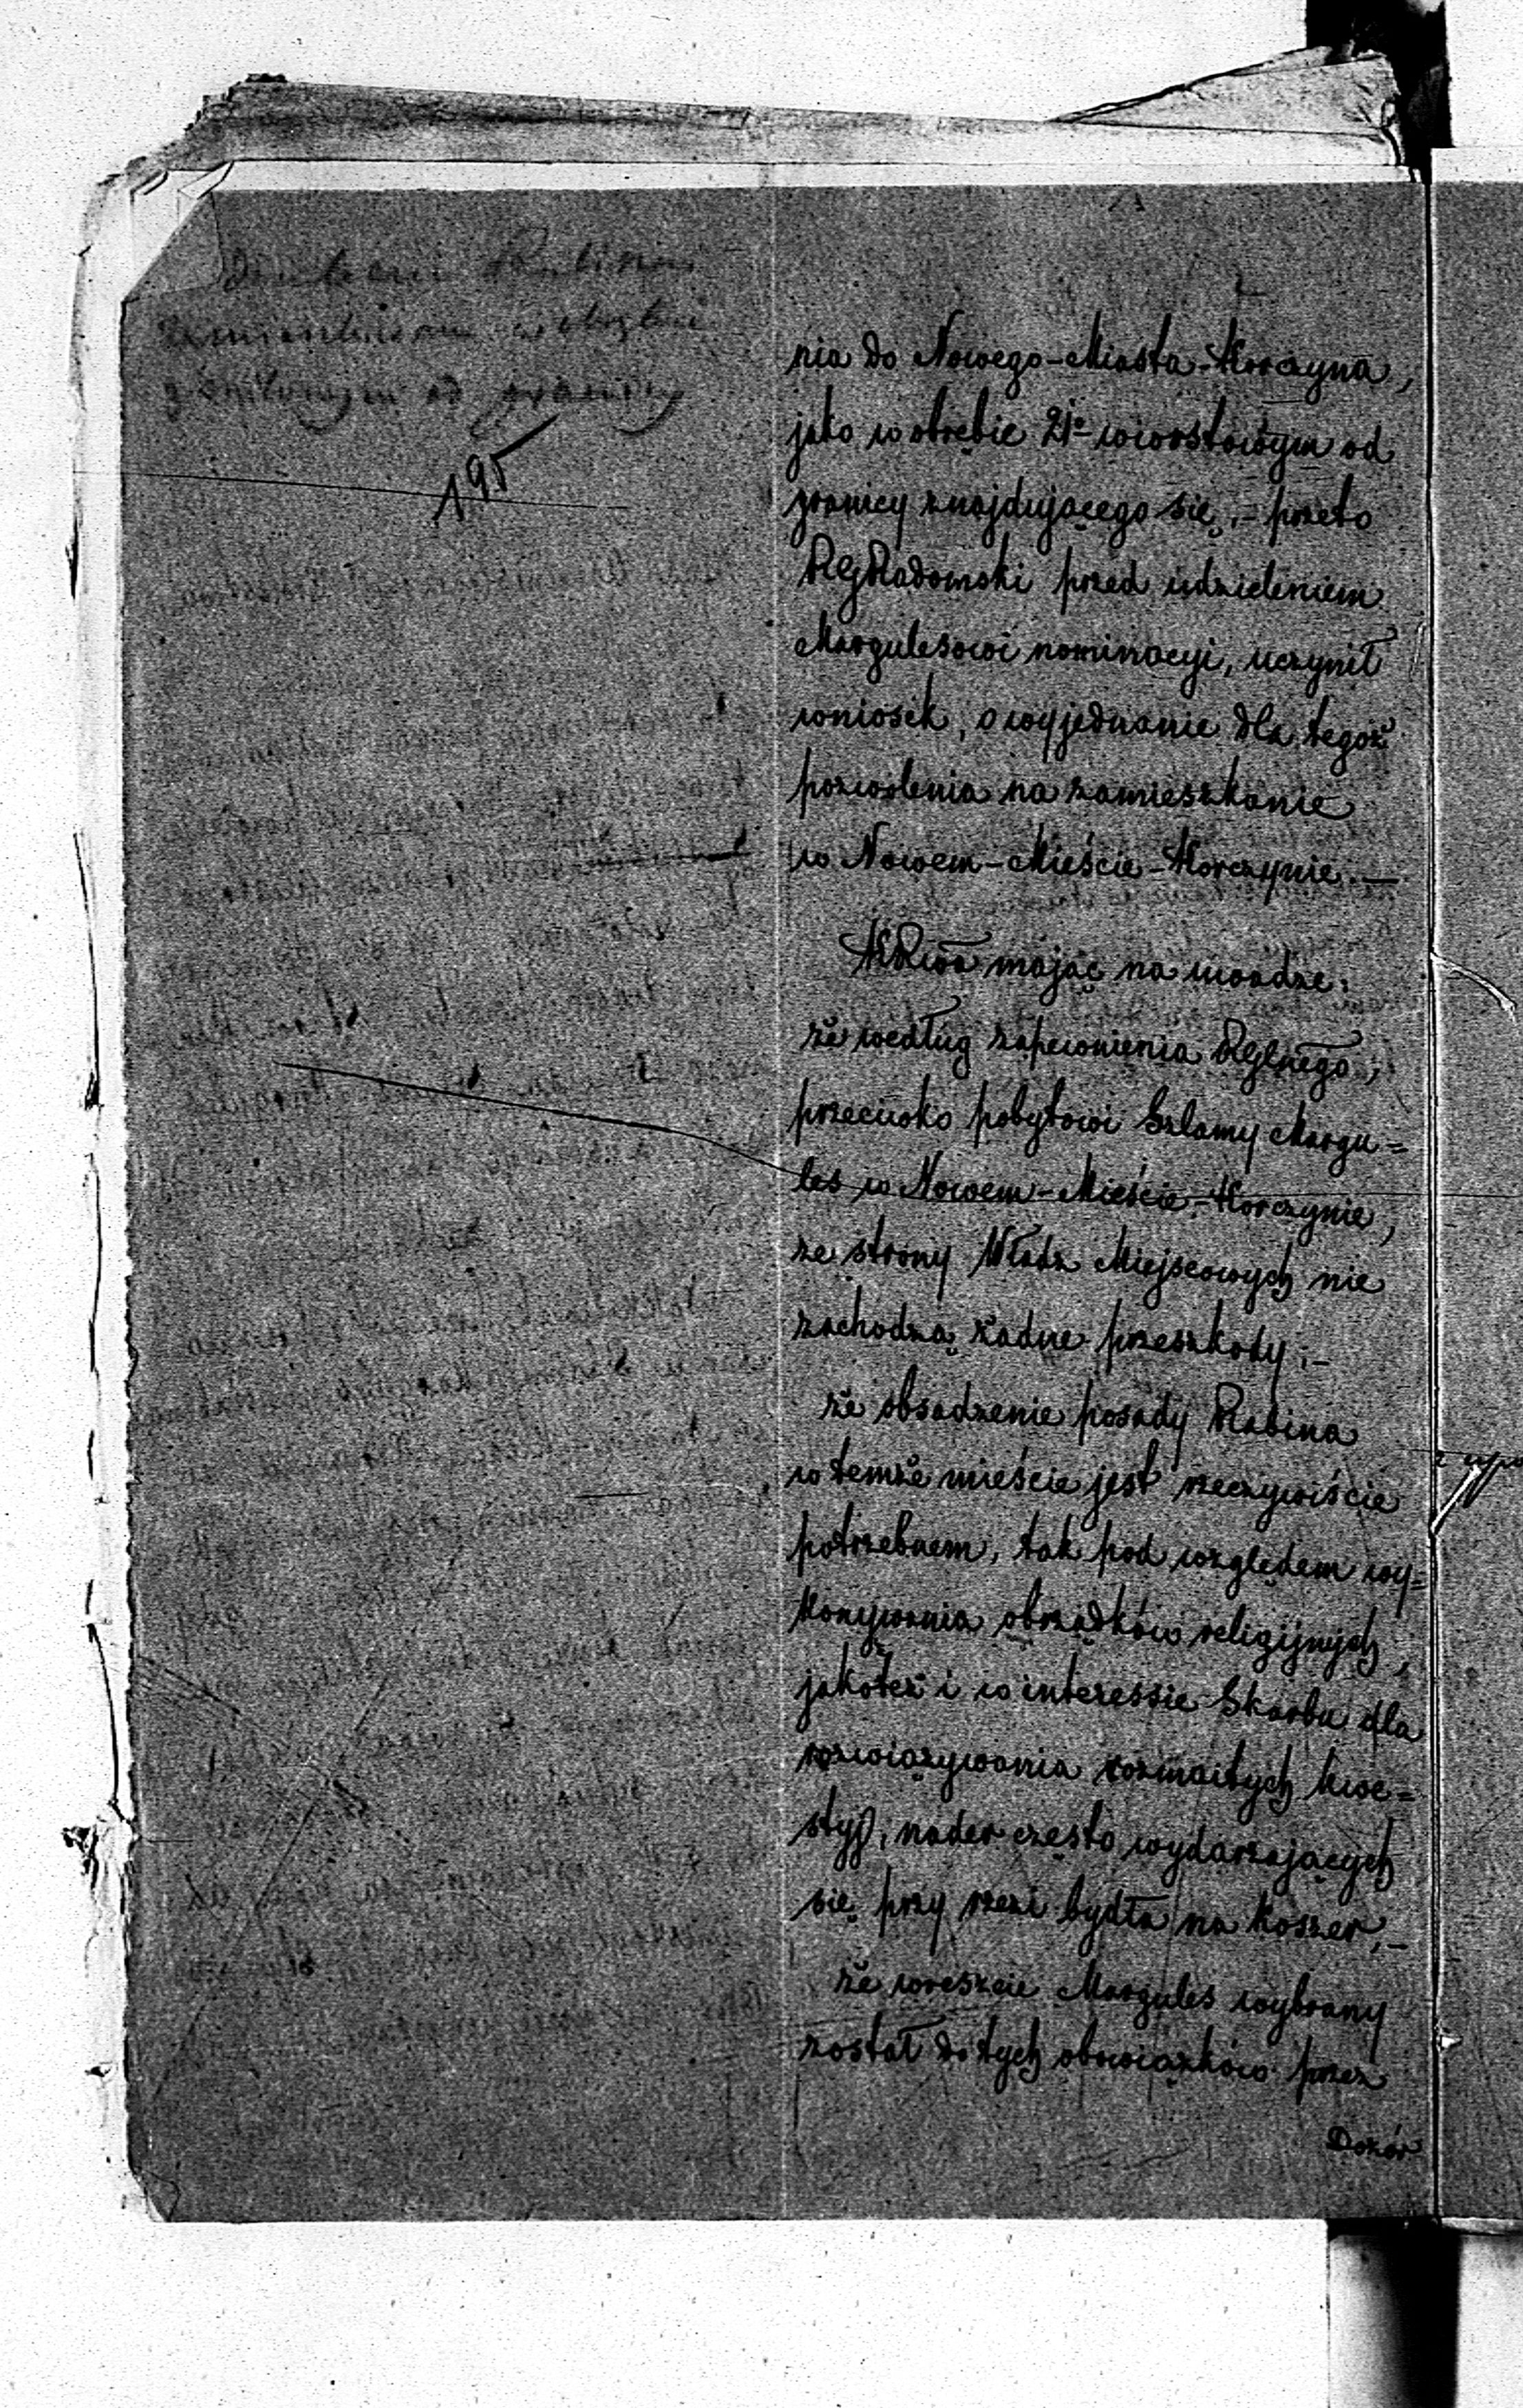 195
nia do Nowego-Miasta-Korczyna,
jako w obrębie 21o wiorstowym od
granicy znajdującego się,- przeto
RGRadomski przed udzieleniem
Margulesowi nominacyi, uczynił
wniosek, o wyjednanie dla tegoż
pozwolenia na zamieszkanie
w Nowem-Mieście-Korczynie.—
mając na uwadze:
że według zapewnienia RGlnego,
przeciwko pobytowi Szlamy Margu=
les w Nowem-Mieście-Korczynie,
ze strony Władz Miejscowych nie
zachodzą żadne przeszkody;-
że obsadzenie posady Rabina
w temże mieście jest rzeczywiście
potrzebnem, tak pod względem wy=
konywania obrządków religijnych,
jakoteż i w interessie Skarbu dla
rozwiązywania rozmaitych kwe=
styj, nader często wydarzających
się przy rzezi bydła na koszer,-
że wreszcie Margules wybrany
został do tych obowiązków przez
Dozór